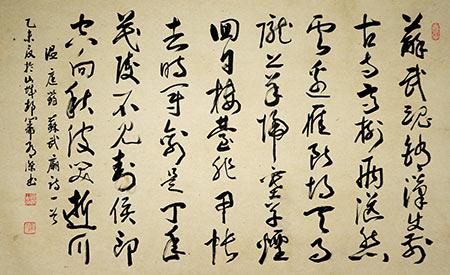 蘇武魂銷漢使前
古祠高樹兩茫然
雲邊雁斷胡天月
隴上羊歸塞草煙
回日樓臺非甲帳
去時冠劍是丁年
茂陵不見封侯印
空向秋波哭逝川
溫庭筠 蘇武廟詩一首
乙未夏於山城 書